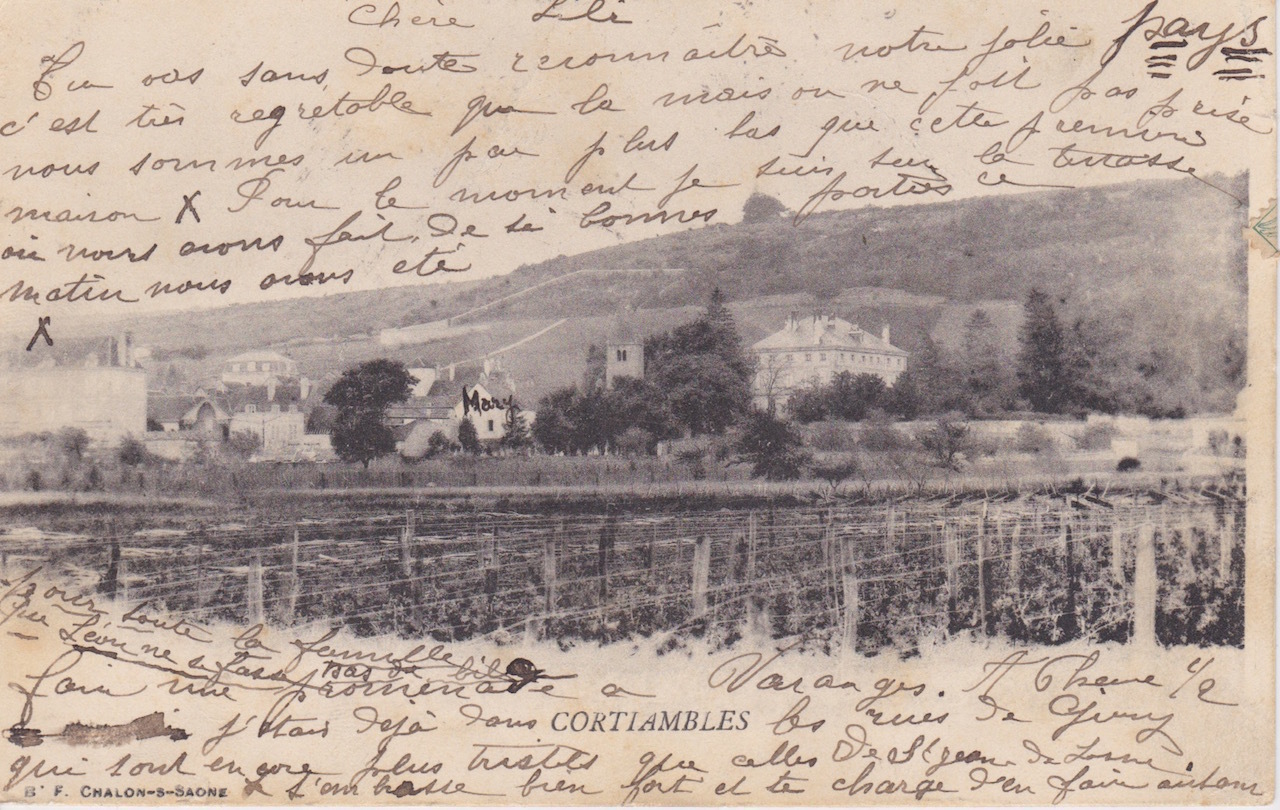 Chère Lili
Tu vas sans doute reconnaître notre jolie pays
c'est très regrétable que la maison ne soit pas prise
nous sommes un peu plus bas que cette première
maison X Pour le moment je suis sur la terrasse
où nous avons fait de si bonnes parties ce
matin nous avons été
X
Mary
Pour toute la famille
que Léon ne se fasse pas de bile
faire une promenade a Varanges. A 7 heure 1/2
j'étais déjà dans les rues de Givry
CORTIAMBLES
qui sont encore plus tristes que celles de St jean de Losne.
B. F. CHALON-S-SAONE
Je t'embrasse bien fort et te charge d'en faire autant